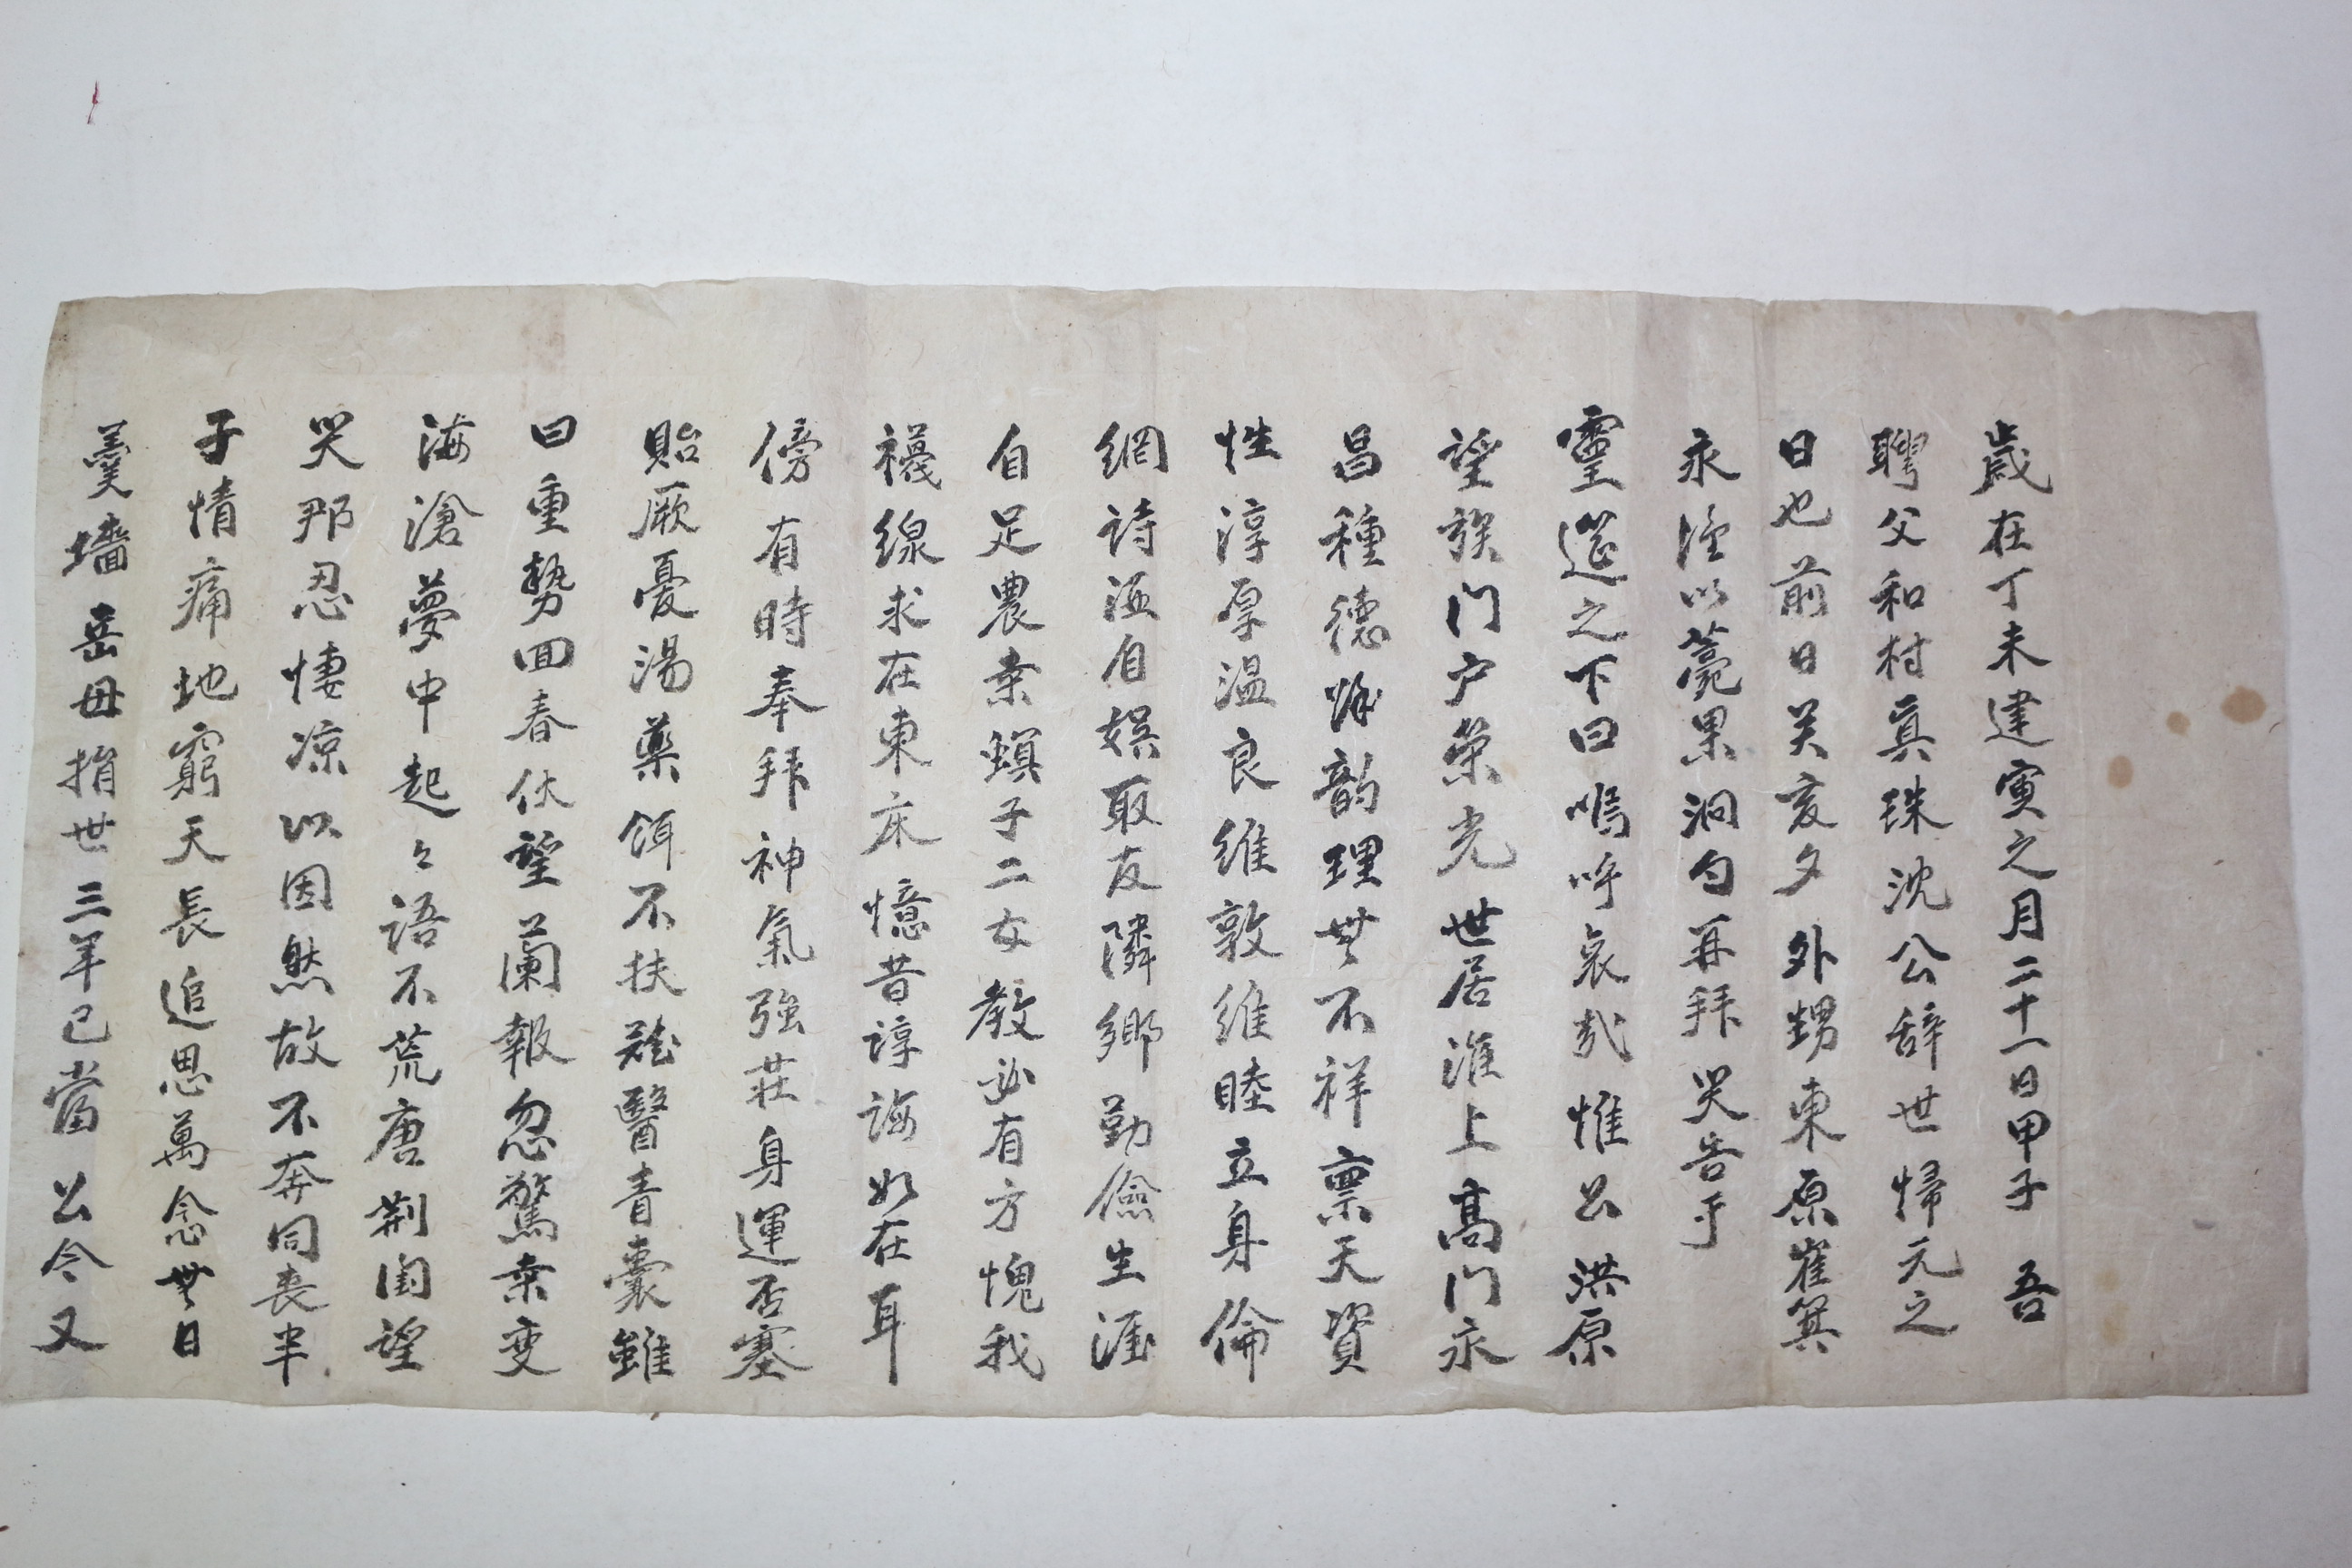 歲在丁未建寅之月二十一日甲子 吾
聘父和村真珠沈公辞世歸元之
日也前日癸亥夕外甥東原崔箕
永謹以薨果泂勺再拜哭告于
靈筵之下曰嗚呼哀哉惟公洪原
望族门户榮光世居淮上高门永
昌種德 韵理無不祥禀天資
性淳厚温良維敦維睦立身倫
綱詩酒自娱取友隣鄉勤儉生涯
自足農桒螟子二女教必有方愧我
襪線求在東床憶昔諄誨如在耳
傍有時奉拜神氣強莊身運否塞
貽厥憂湯藥餌不扶 醫青囊雖
曰重勢回春伏望蘭報忽驚桒变
海滄夢中起々語不荒唐荆闺望
哭那忍悽凉以因然故不奔同丧半
子情痛地窮天長追思萬念無日
羹墻岳母捐世三年已當 公今又